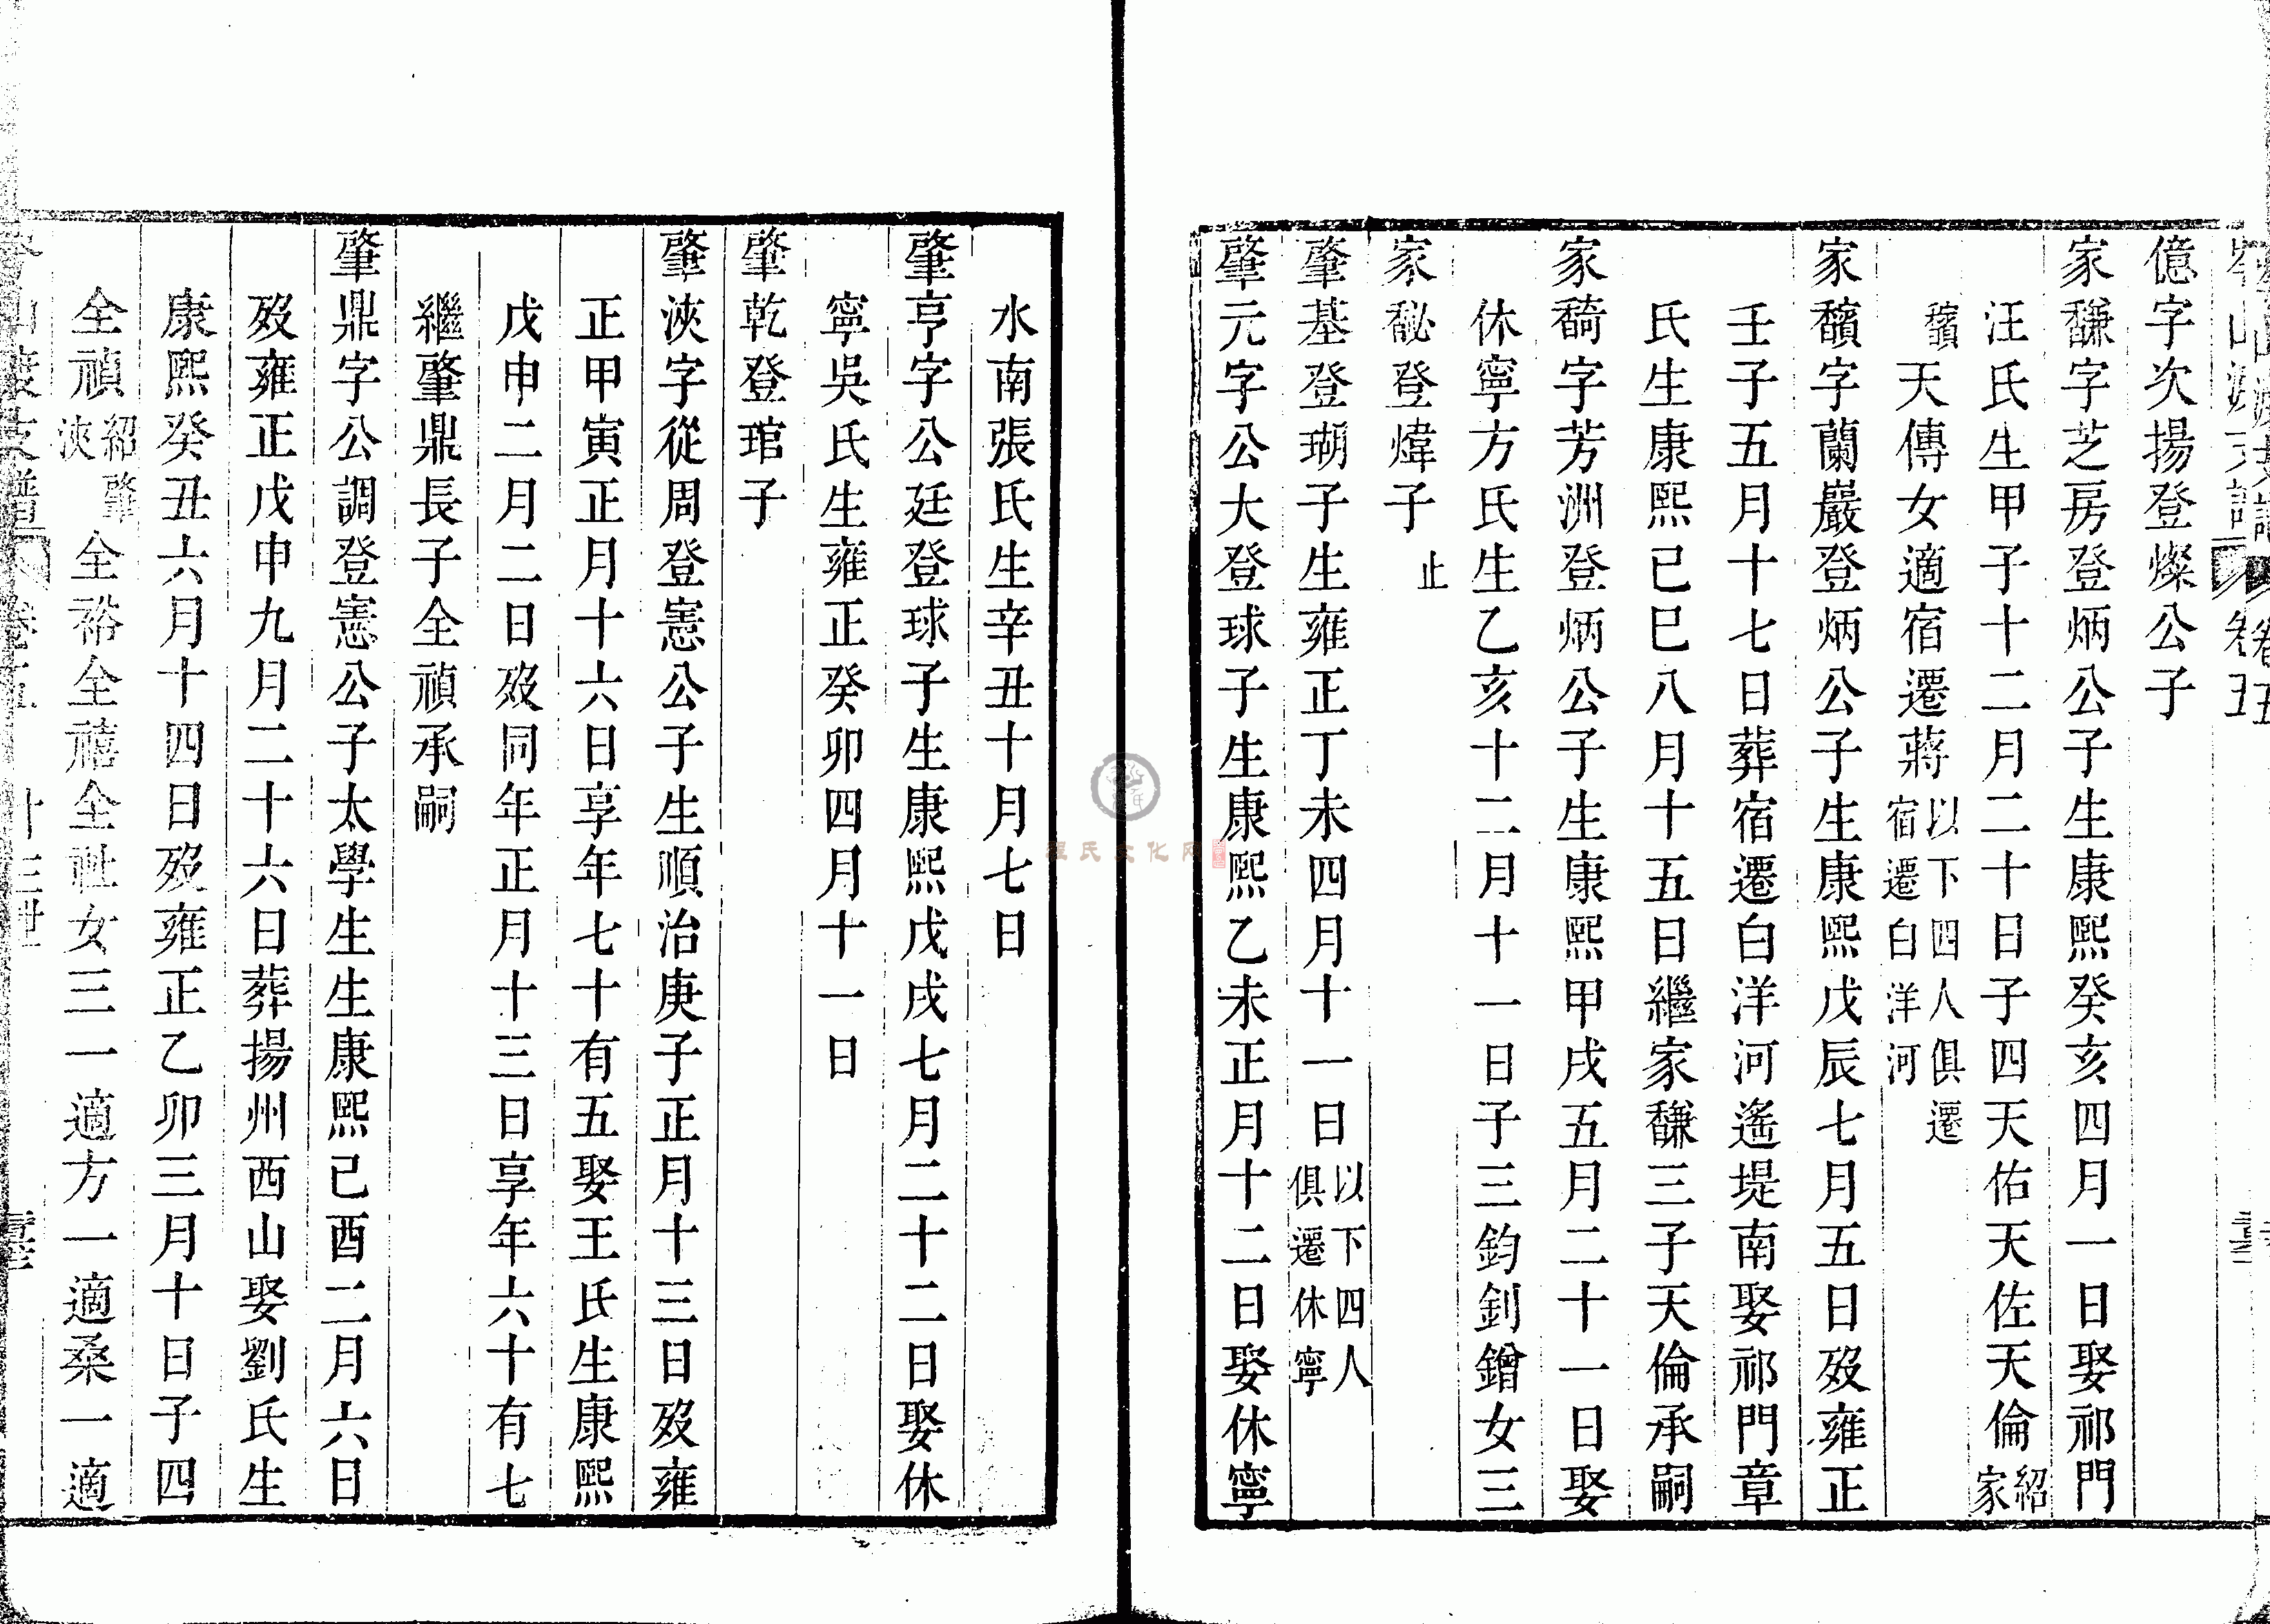 億字次揚登燦公子
家馦字芝房登炳公子生康熙癸亥四月一日娶祁門
汪氏生甲子十二月二十日子四天佑天佐天倫紹家
馪天傳女適宿遷蔣以下四人俱遷宿遷白洋河
家馪字蘭巖登炳公子生康熙戊辰七月五日歿雍正
壬子五月十七日葬宿遷白洋河遙堤南娶祁門章
氏生康熙己巳八月十五日繼家馦三子天倫承嗣
家馣字芳洲登炳公子生康熙甲戌五月二十一日娶
休寧方氏生乙亥十二月十一日子三鈞釗鏳女三
家馝登煒子止
肇基登瑚子生雍正丁未四月十一日以下四人俱遷休寧
肇元字公大登球子生康熙乙未正月十二日娶休寧
水南張氏生辛丑十月七日
肇亨字公廷登球子生康熙戊戌七月二十二日娶休
寧吳氏生雍正癸卯四月十一日
肇乾登琯子
肇浹字從周登憲公子生順治庚子正月十三日歿雍
正甲寅正月十六日享年七十有五娶王氏生康熙
戊申二月二日歿同年正月十三日享年六十有七
繼肇鼎長子全禎承嗣
肇鼎字公調登憲公子太學生生康熙己酉二月六日
歿雍正戊申九月二十六日葬揚州西山娶劉氏生
康熙癸丑六月十四日歿雍正乙卯三月十日子四
全禎紹肇浹全裕全禧全祉女三一適方一適桑一適